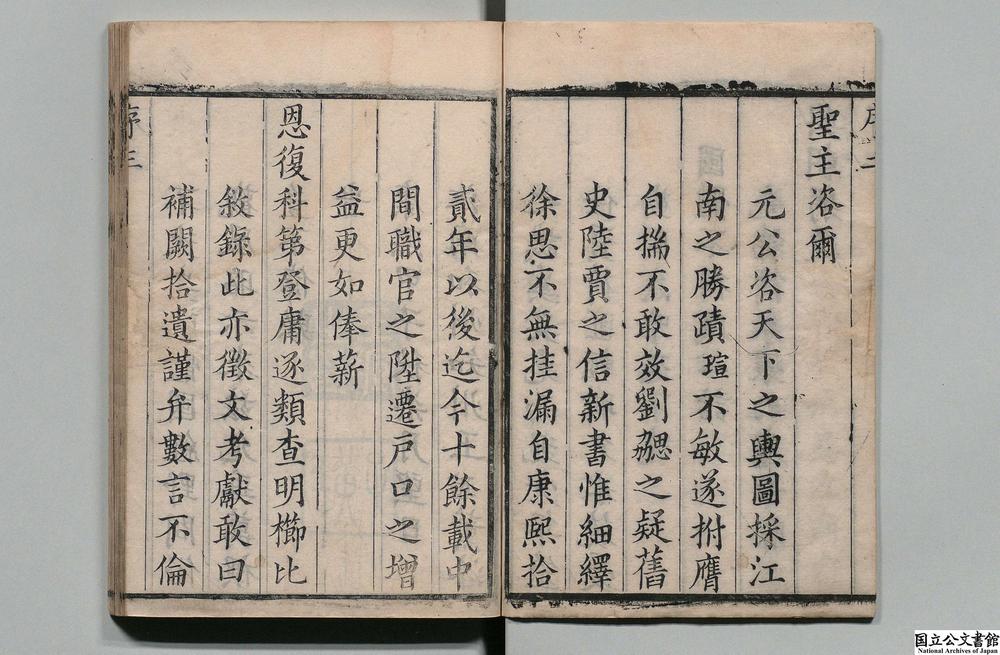 序二
聖主咨爾
元公咨天下之輿圖採江
南之勝蹟瑄不敏遂拊膺
自揣不敢效劉勰之疑舊
史陸賈之信新書惟細繹
徐思不無挂漏自康熙拾
貳年以後迄今十餘載中
間職官之陞遷戶口之增
益更如俸薪
恩復科第登庸逐類查明櫛比
敘錄此亦徵文考獻敢曰
補闕拾遺謹弁數言不倫
序三
国立公文書館
National Archives of Japan